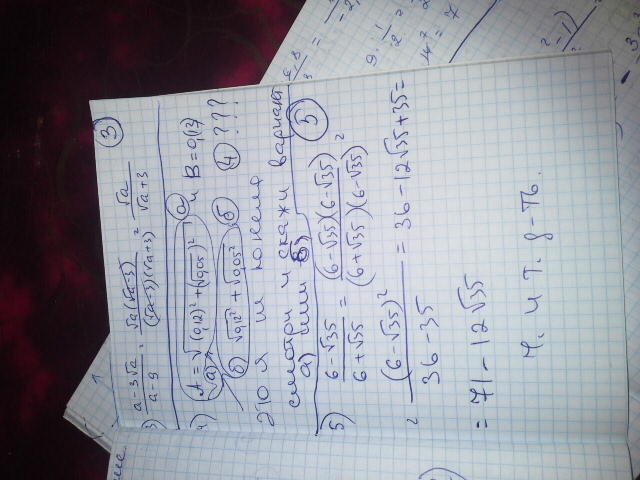 ③
3) a-3√a / a-9 = √a(√a-3) / (√a-3)(√a+3) = √a / √a+3
4) A = √(0,12)² + (√0,05)² и B = 0,13
а)
б) √0,12² + √0,05²
а
б
④ ???
это я не понела
смотри и скажи вариант
а) или б)
⑤
5) 6-√35 / 6+√35 = (6-√35)(6-√35) / (6+√35)(6-√35) =
= (6-√35)² / 36-35 = 36-12√35+35 =
= 71-12√35
ч. и т. д-ть.